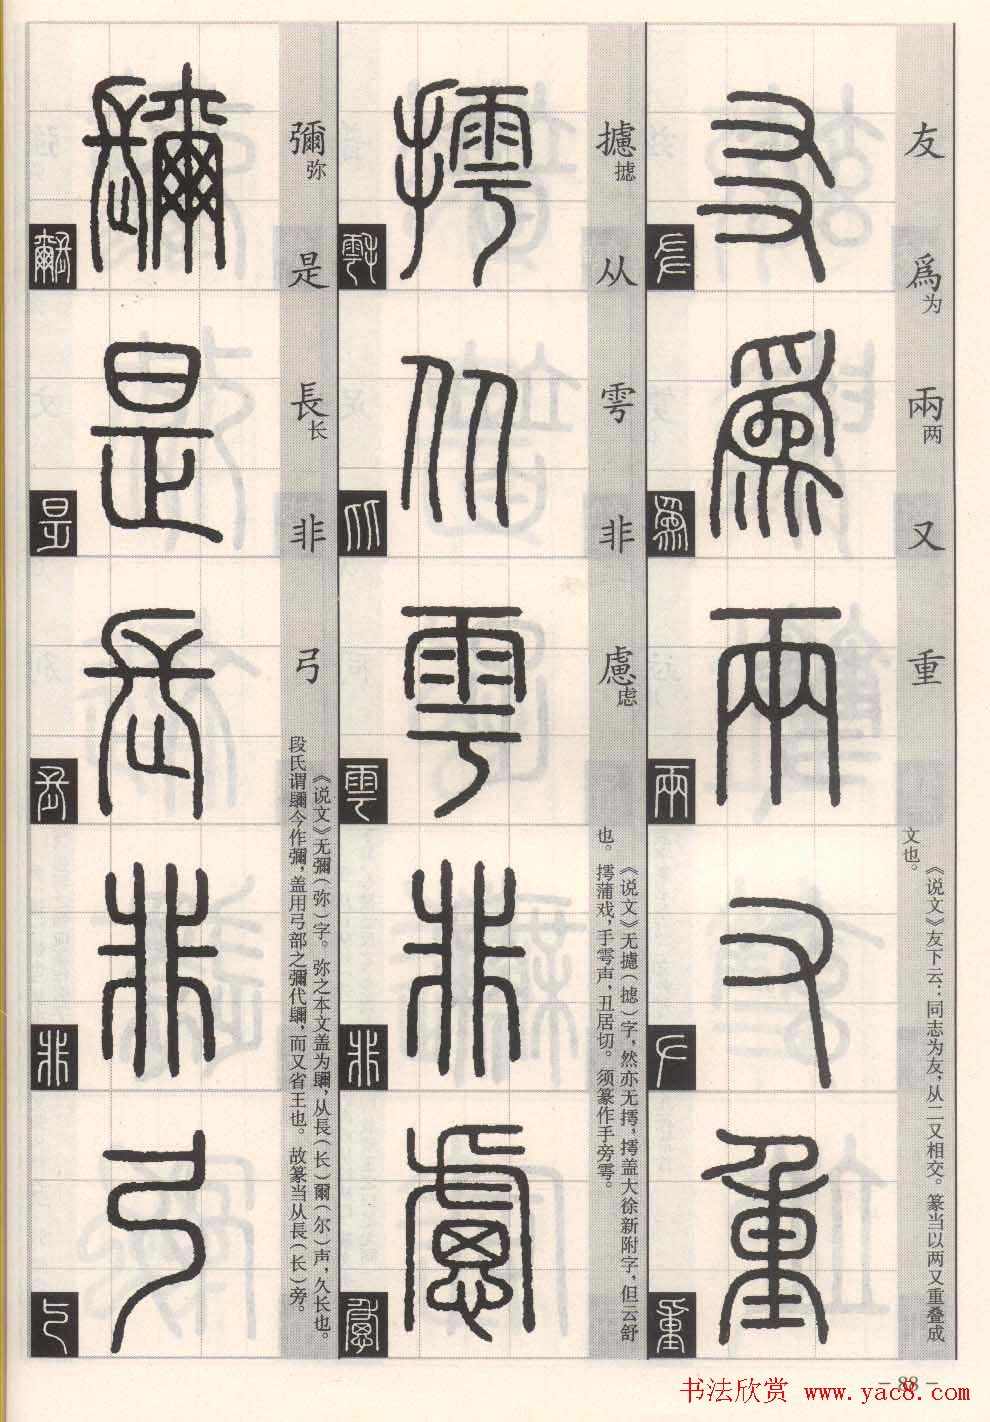 友
爲为
兩两
又
重
《说文》友下云：同志为友，从二又相交。篆当以两又重叠成
文也。
攄摅
从
雩
非
慮虑
《说文》无攄（摅）字，然亦无摴，摴盖大徐新附字，但云舒
也。摴蒲戏，手雩声，丑居切。须篆作手旁雩。
彌弥
是
長长
非
弓
《说文》无彌（弥）字。弥之本文盖为镾，从長（长）爾（尔）声，久长也。
段氏谓镾今作彌，盖用弓部之彌代镾，而又省王也。故篆当从長（长）旁。
- 88 -
书法欣赏 www.yac8.com